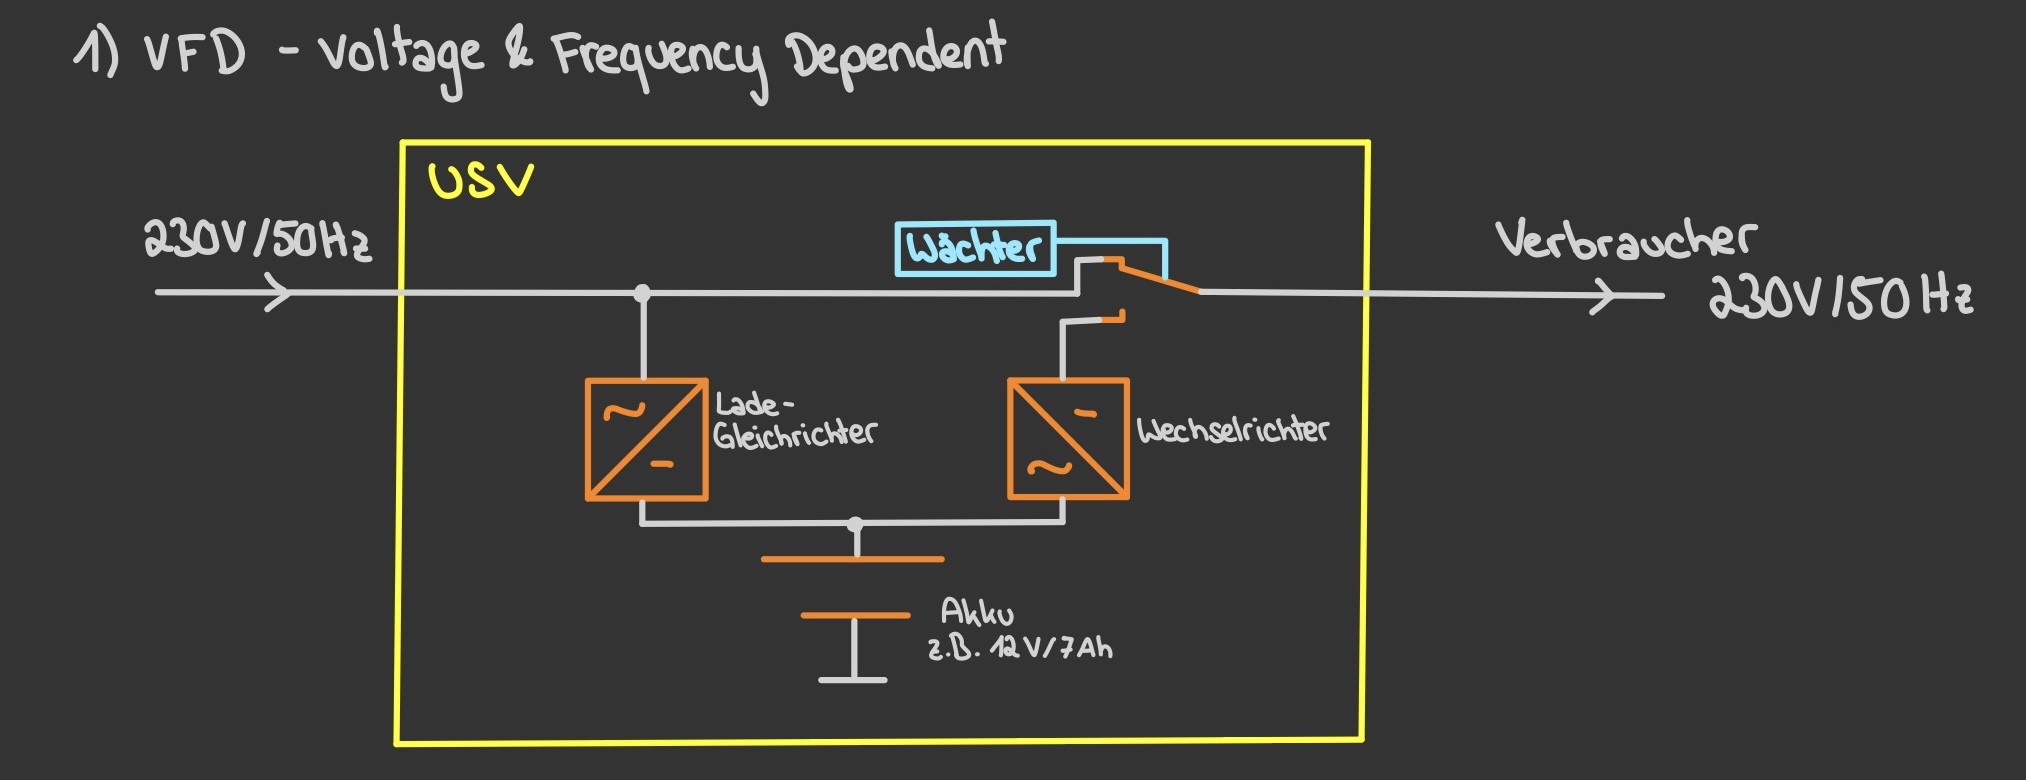 1) VFD - Voltage & Frequency Dependent
USV
230V/50Hz
Wächter
Verbraucher
230V/50Hz
~
-
Lade-
Gleichrichter
-
~
Wechselrichter
Akku
z.B. 12V/7Ah